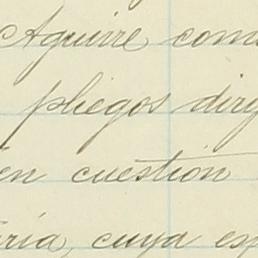 Aguirre com
pliegos dirig
en cuestión
ría, cuya ex